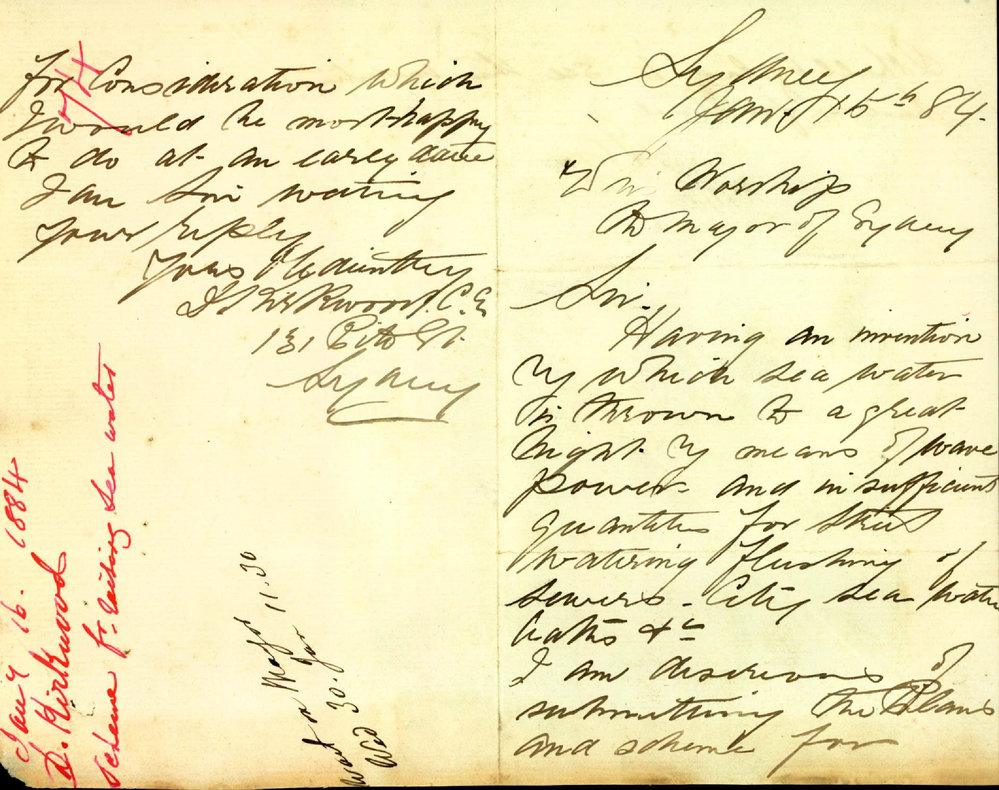 Sydney
Jany 15th 84.
His Worship
The Mayor of Sydney
Sir.
Having an invention
by which sea water
is thrown to a great
hight by means of wave
power and in sufficient
quantities for street
watering flushing of
sewers - City sea water
baths &c
I am desireous of
submitting the Plans
and scheme for
for Consideration which
I would be most happy
to do at an early date
I am Sir waiting
your reply
Yours Obediently
D Kirkwood. C.E
131 Pitt St.
Sydney
Jany 16. 1884
D. Kirkwood
scheme fr. raising sea water
Wait on Mayor
Wed 30. Jan 11.30